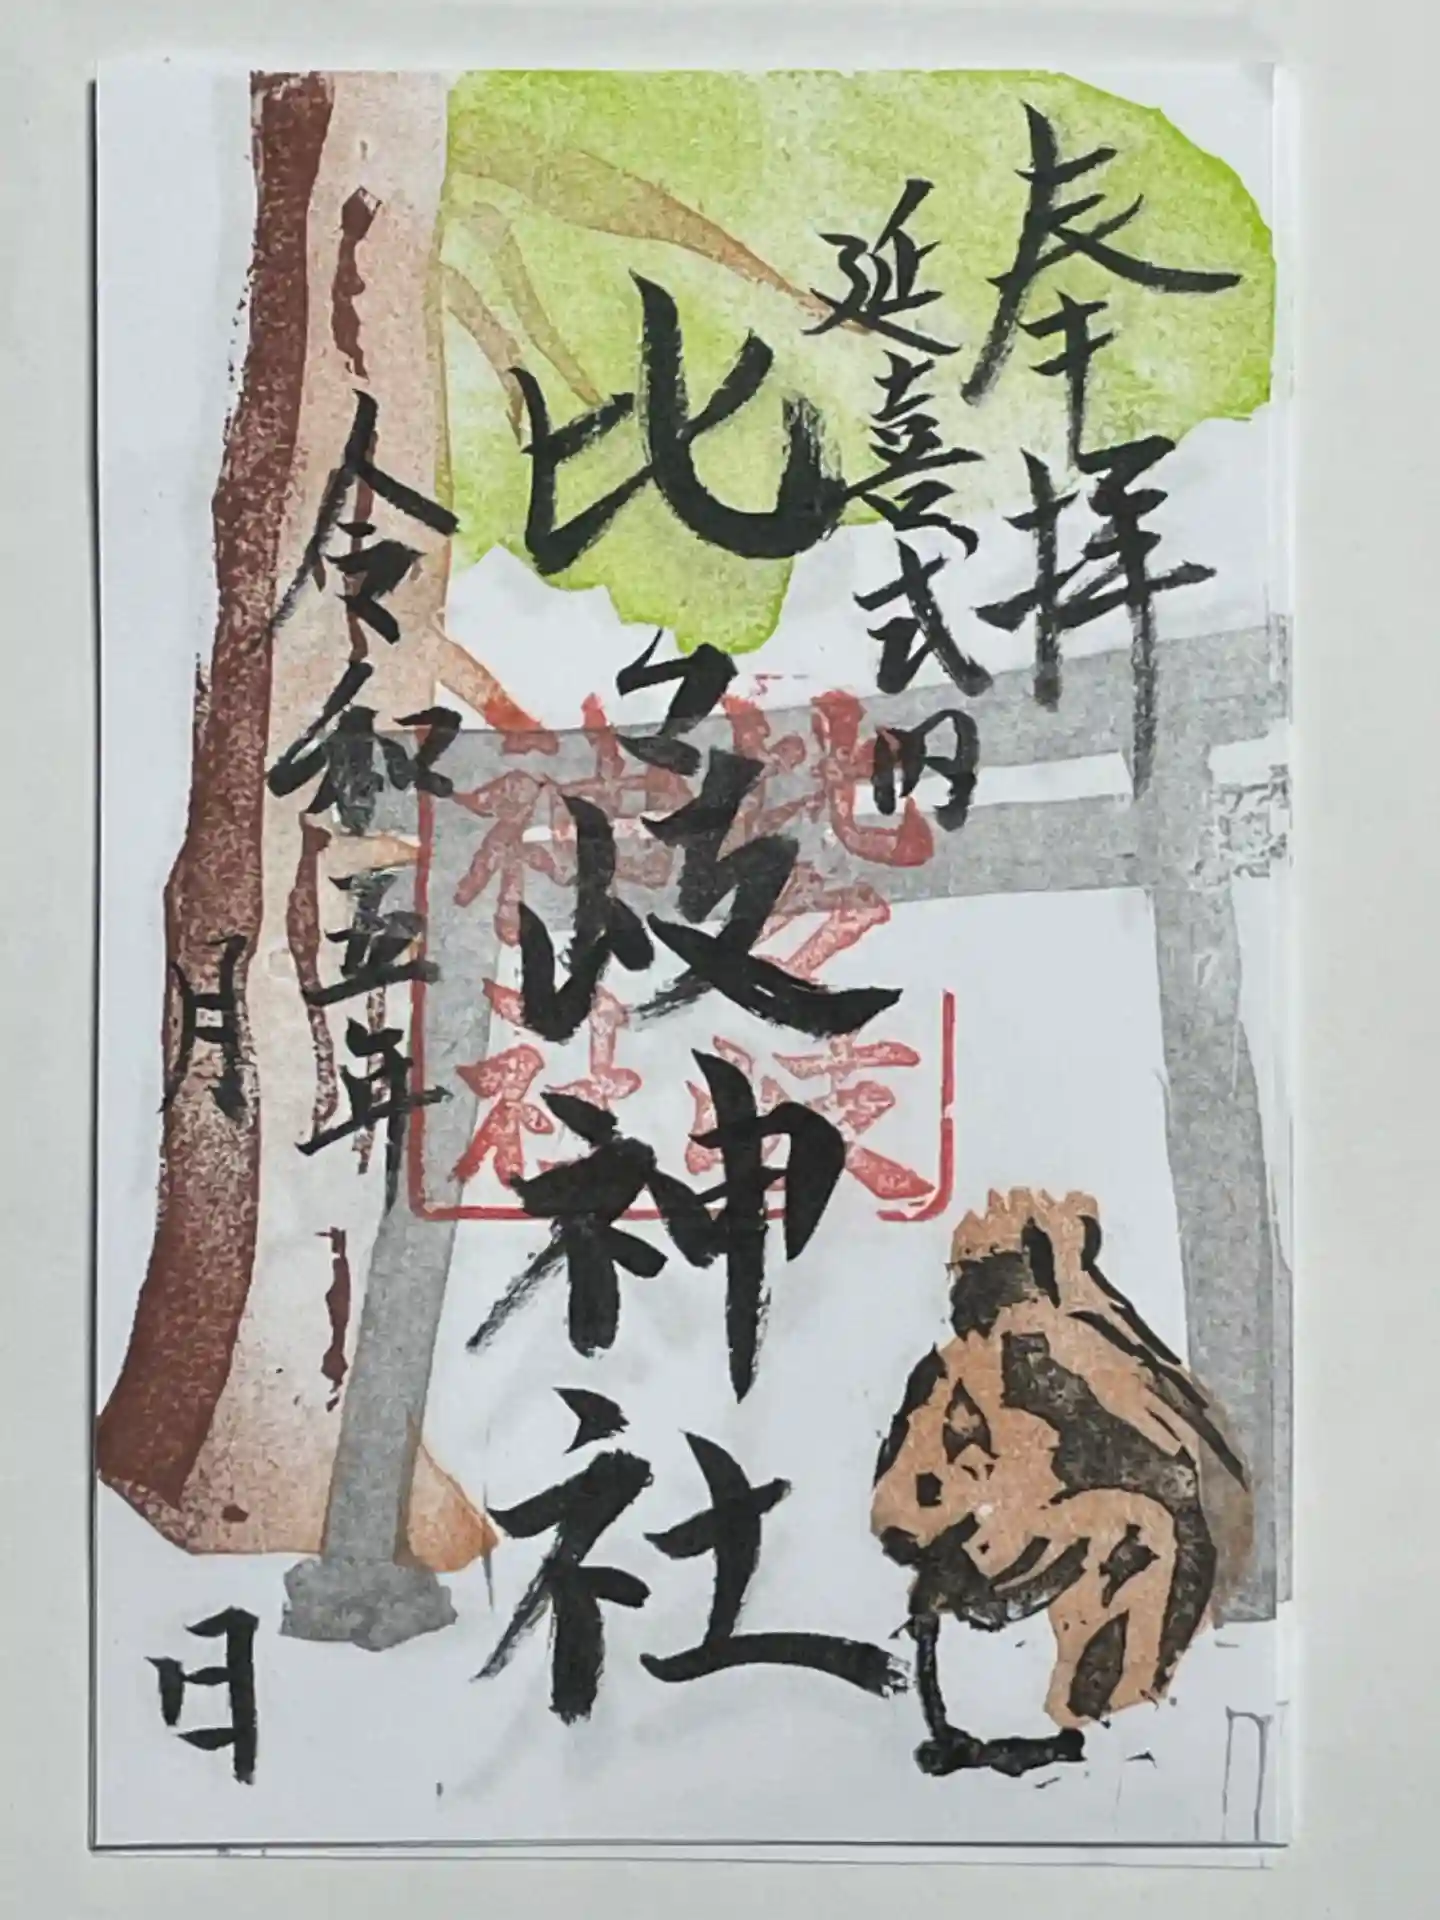 奉拝
延喜式内
比々岐神社
比々岐
神社
令和五年
月
日